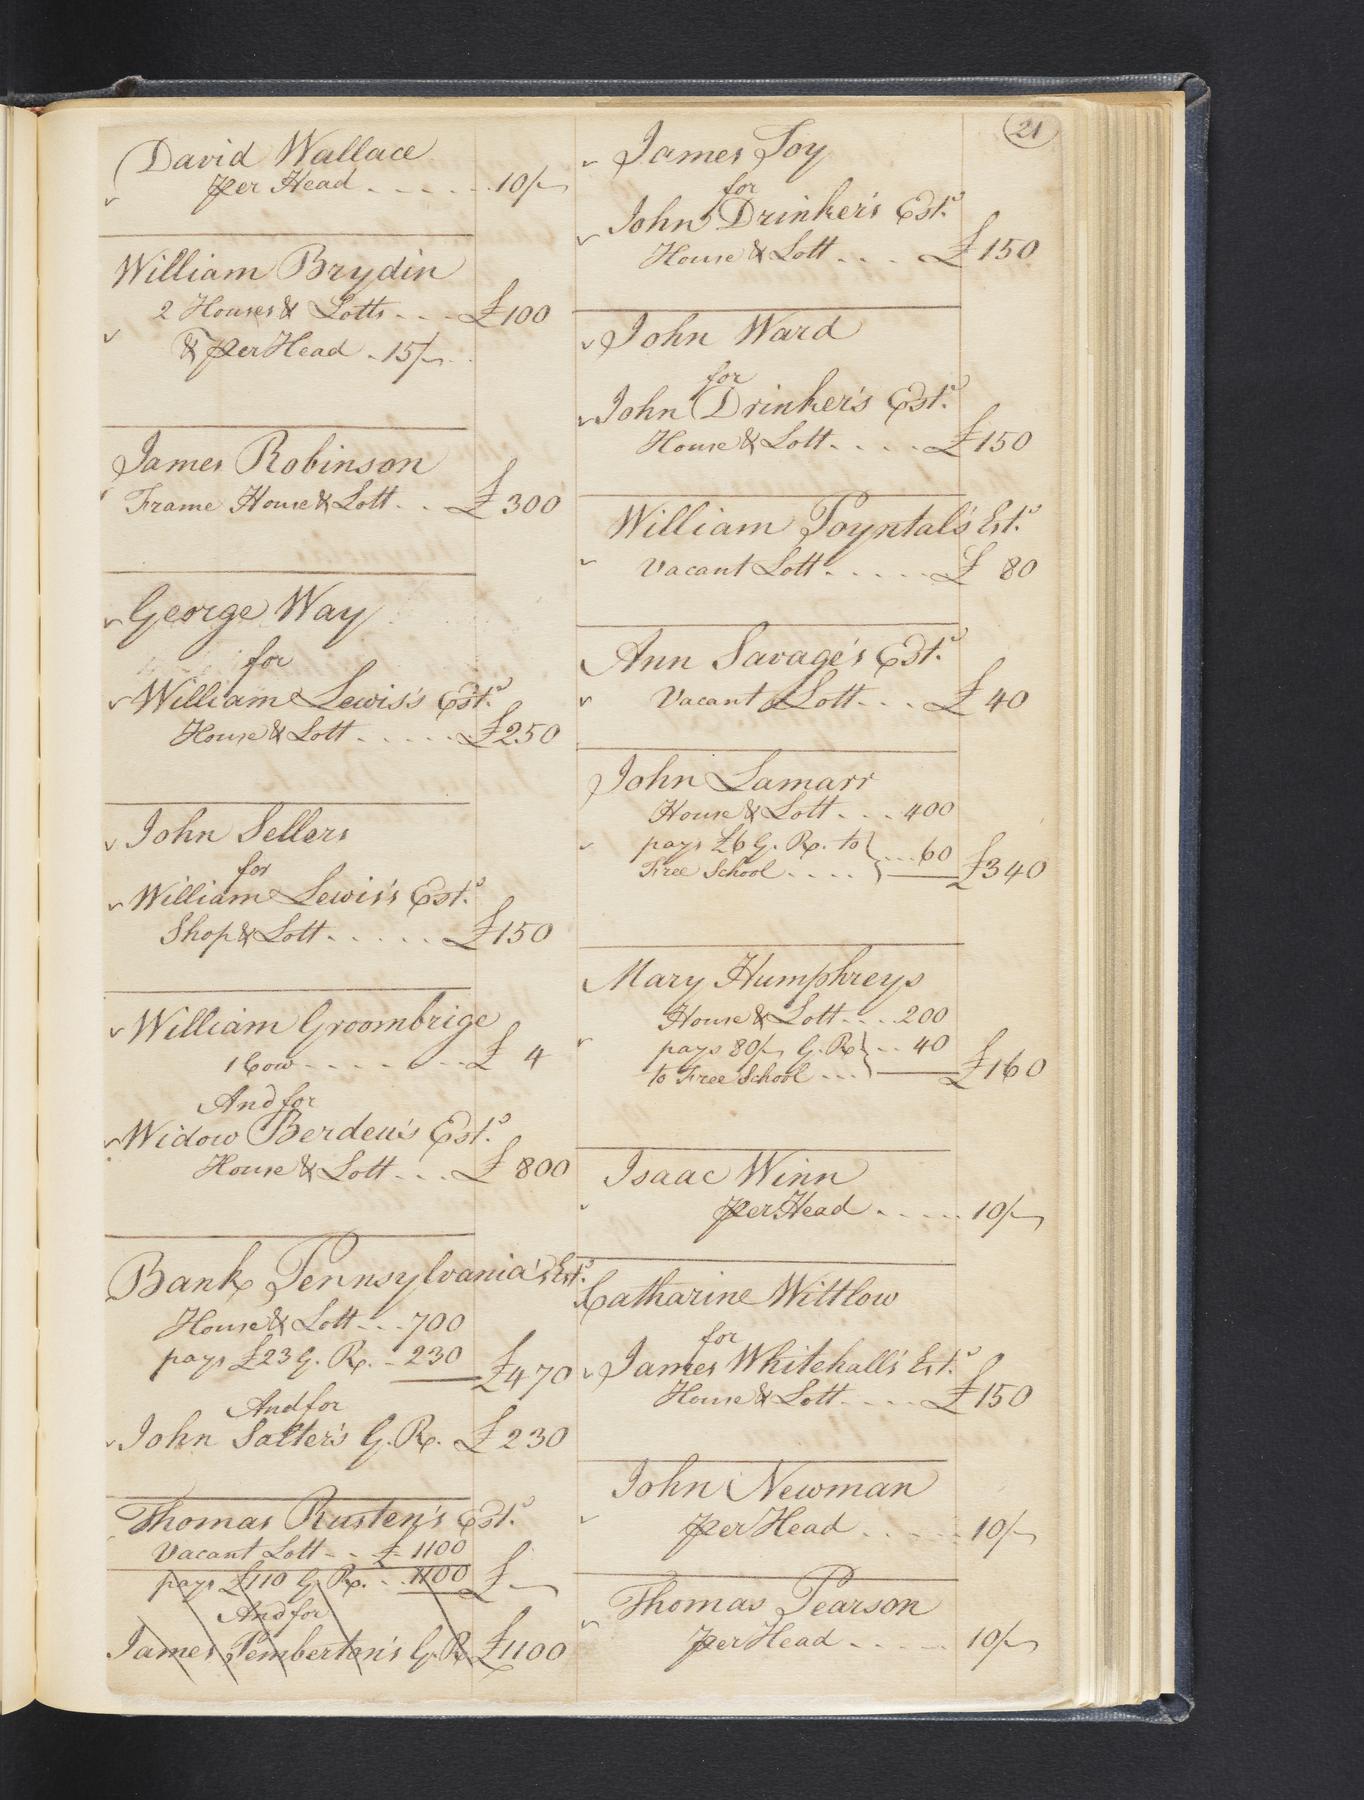 21
David Wallace
per Head - - - - - 10/-
William Brydin
2 Houses & Lotts - - - £100
& per Head - 15/-
James Robinson
Frame House & Lott - - £300
George Way
for
William Lewis's Est.
House & Lott - - - - - £250
John Sellers
for
William Lewis's Est.
Shop & Lott - - - - - £150
William Groombrige
1 Cow - - - - - - - £ 4
And for
Widow Berden's Est.
House & Lott - - - £ 800
Bank Pennsylvania's Est.
House & Lott - - - 700
pays £23 G. R. - 230 £470
And for
John Salter's G. R. £230
Thomas Rusten's Est.
Vacant Lott - - £ 1100
pays £110 G. R. - - 1100 £ -
And for
James Pemberton's G. R. £1100
James Toy
for
John Drinker's Est.
House & Lott - - - - £150
John Ward
for
John Drinker's Est.
House & Lott - - - - £150
William Poyntal's Est.
Vacant Lott - - - - - £ 80
Ann Savage's Est.
Vacant Lott - - - £ 40
John Lamarr
House & Lott - - - 400
pays £6 G. R. to } - - - 60
Free School - - - - £340
Mary Humphreys
House & Lott - - - 200
pays 80/- G. R. } - - 40
to Free School - - - £160
Isaac Winn
per Head - - - - - 10/-
Catharine Wittlow
for
James Whitehall's Est.
House & Lott - - - - £150
John Newman
per Head - - - - - 10/-
Thomas Pearson
per Head - - - - - 10/-